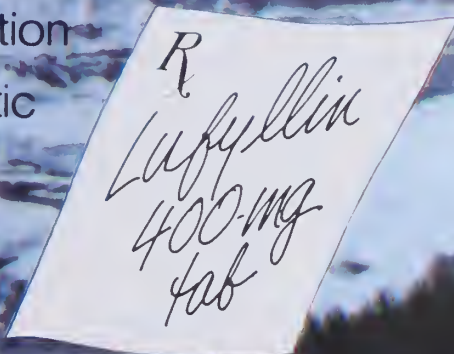 tion
tic
R
Lufyllin
400-mg
tab